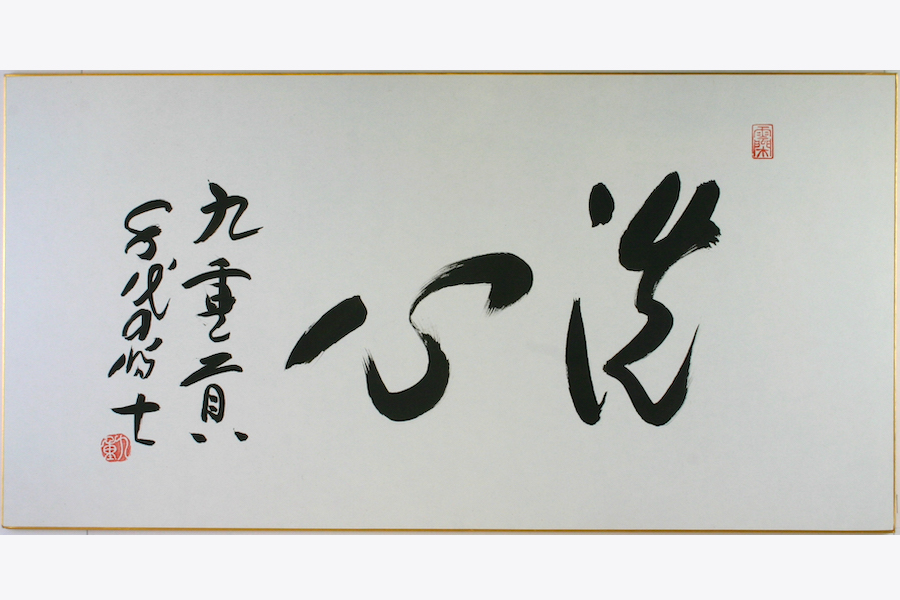 洗心
九重貢
千代の富士
九重